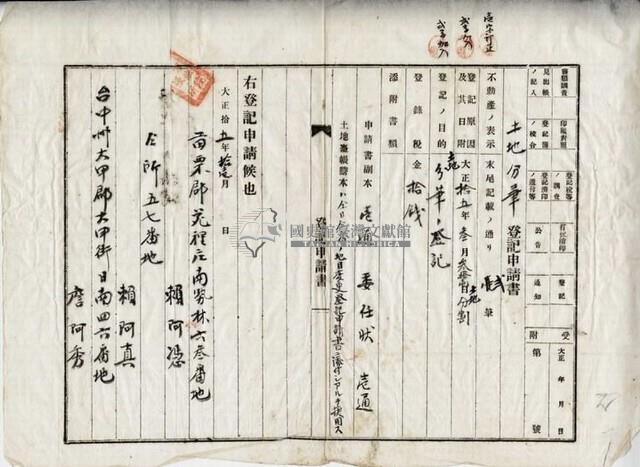 壱字訂正
弐字加入
書類調査
見出帳ノ記入
印鑑対照
登記簿ノ校合
登記税等ノ調査
登記済印ノ還付等
公告
通知
登記
受附
大正 年 月 日
第 號
土地分筆 登記申請書
不動產ノ表示 末尾記載ノ通リ 弐筆
登記原因及其日附 大正拾五年叁月 日土地分割
登記ノ目的 土地分筆ノ登記
登錄税 金拾錢
添附書類
申請書副本 壱通 委任狀 壱通
土地臺帳謄本
登記申請書
右登記申請候也
大正拾五年 月 日
苗栗郡苑裡庄南勢林六叁番地
賴阿憑
仝所五七番地
賴阿真
台中州大甲郡大甲街日南四六番地
詹阿秀
國史館臺灣文獻館